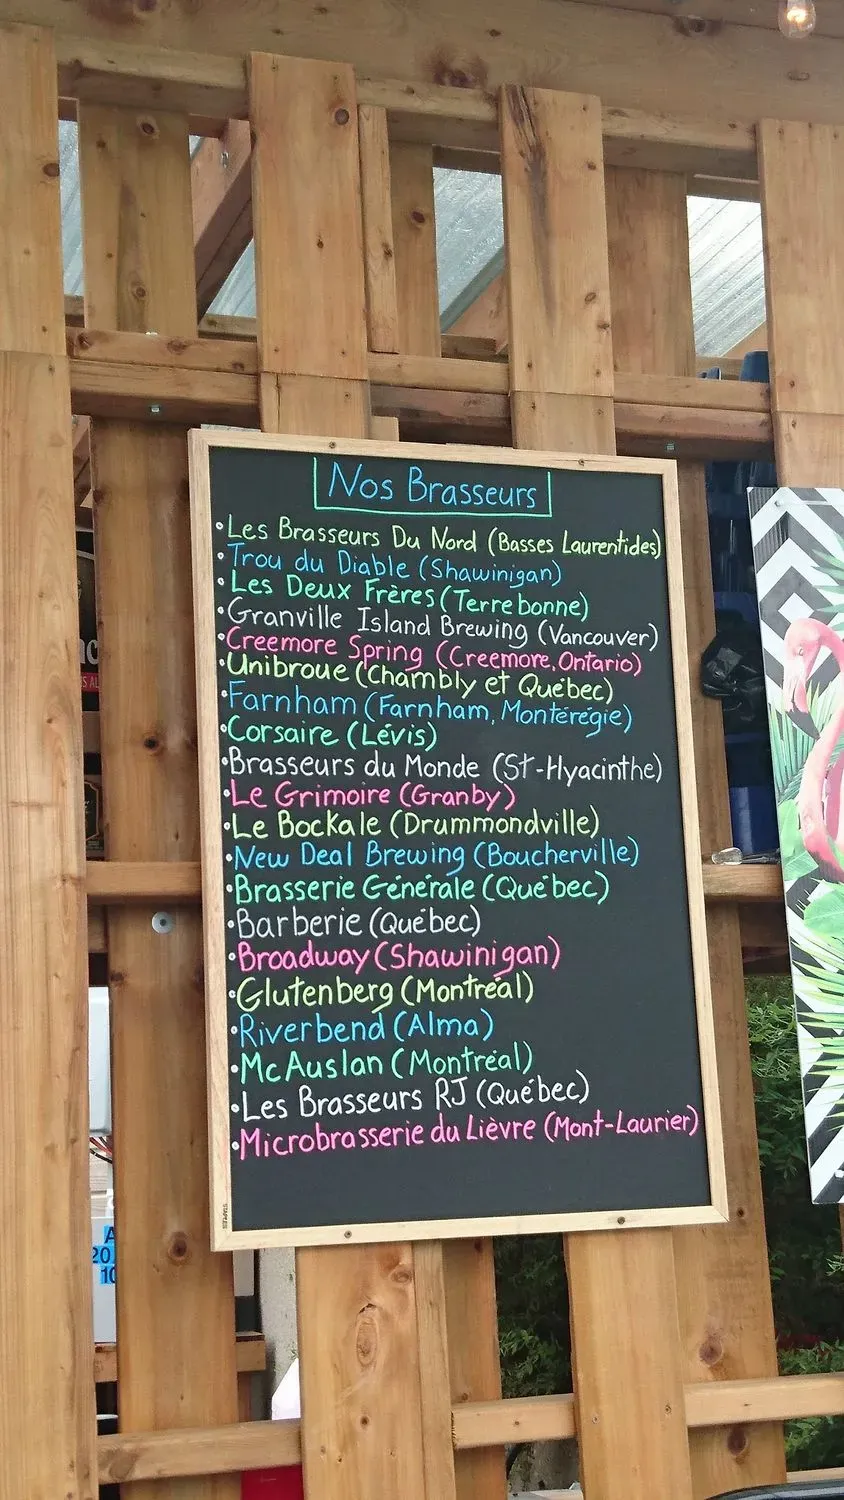 Nos Brasseurs
•Les Brasseurs Du Nord (Basses Laurentides)
•Trou du Diable (Shawinigan)
•Les Deux Frères (Terrebonne)
•Granville Island Brewing (Vancouver)
•Creemore Spring (Creemore, Ontario)
•Unibroue (Chambly et Québec)
•Farnham (Farnham, Montérégie)
•Corsaire (Lévis)
•Brasseurs du Monde (St-Hyacinthe)
•Le Grimoire (Granby)
•Le Bockale (Drummondville)
•New Deal Brewing (Boucherville)
•Brasserie Générale (Québec)
•Barberie (Québec)
•Broadway (Shawinigan)
•Glutenberg (Montréal)
•Riverbend (Alma)
•McAuslan (Montréal)
•Les Brasseurs RJ (Québec)
•Microbrasserie du Lièvre (Mont-Laurier)
STAPLES
A
20
10